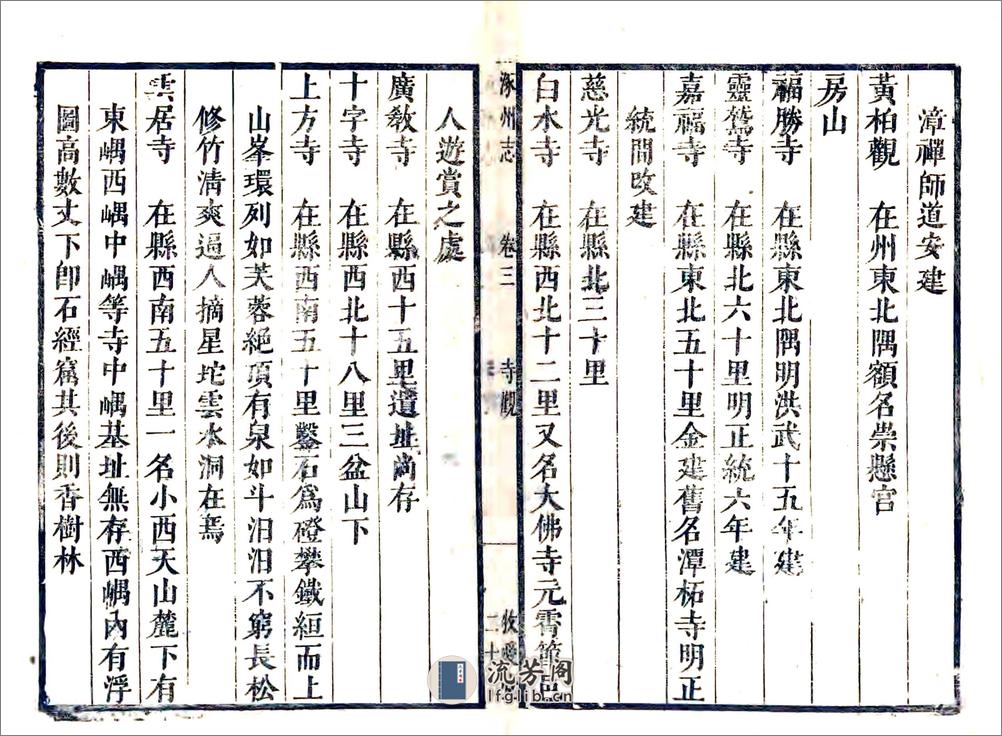 漳禪師道安建
黃柏觀　在州東北隅額名崇懸宫
房山
福勝寺　在縣東北隅明洪武十五年建
靈鷲寺　在縣北六十里明正統六年建
嘉福寺　在縣東北五十里金建舊名潭柘寺明正
統間改建
慈光寺　在縣北三十里
白水寺　在縣西北十二里又名大佛寺元霄節
涿州志　卷三　寺觀　二十
人遊賞之處
廣教寺　在縣西十五里遺址尚存
十字寺　在縣西北十八里三盆山下
上方寺　在縣西南五十里鑿石爲磴攀鐵絙而上
山峯環列如芙蓉絶頂有泉如斗汨汨不窮長松
修竹清爽逼人摘星坨雲水洞在焉
雲居寺　在縣西南五十里一名小西天山麓下有
東峪西峪中峪等寺中峪基址無存西峪內有浮
圖高數丈下卽石經窩其後則香樹林
流芳阁
lfglib.cn